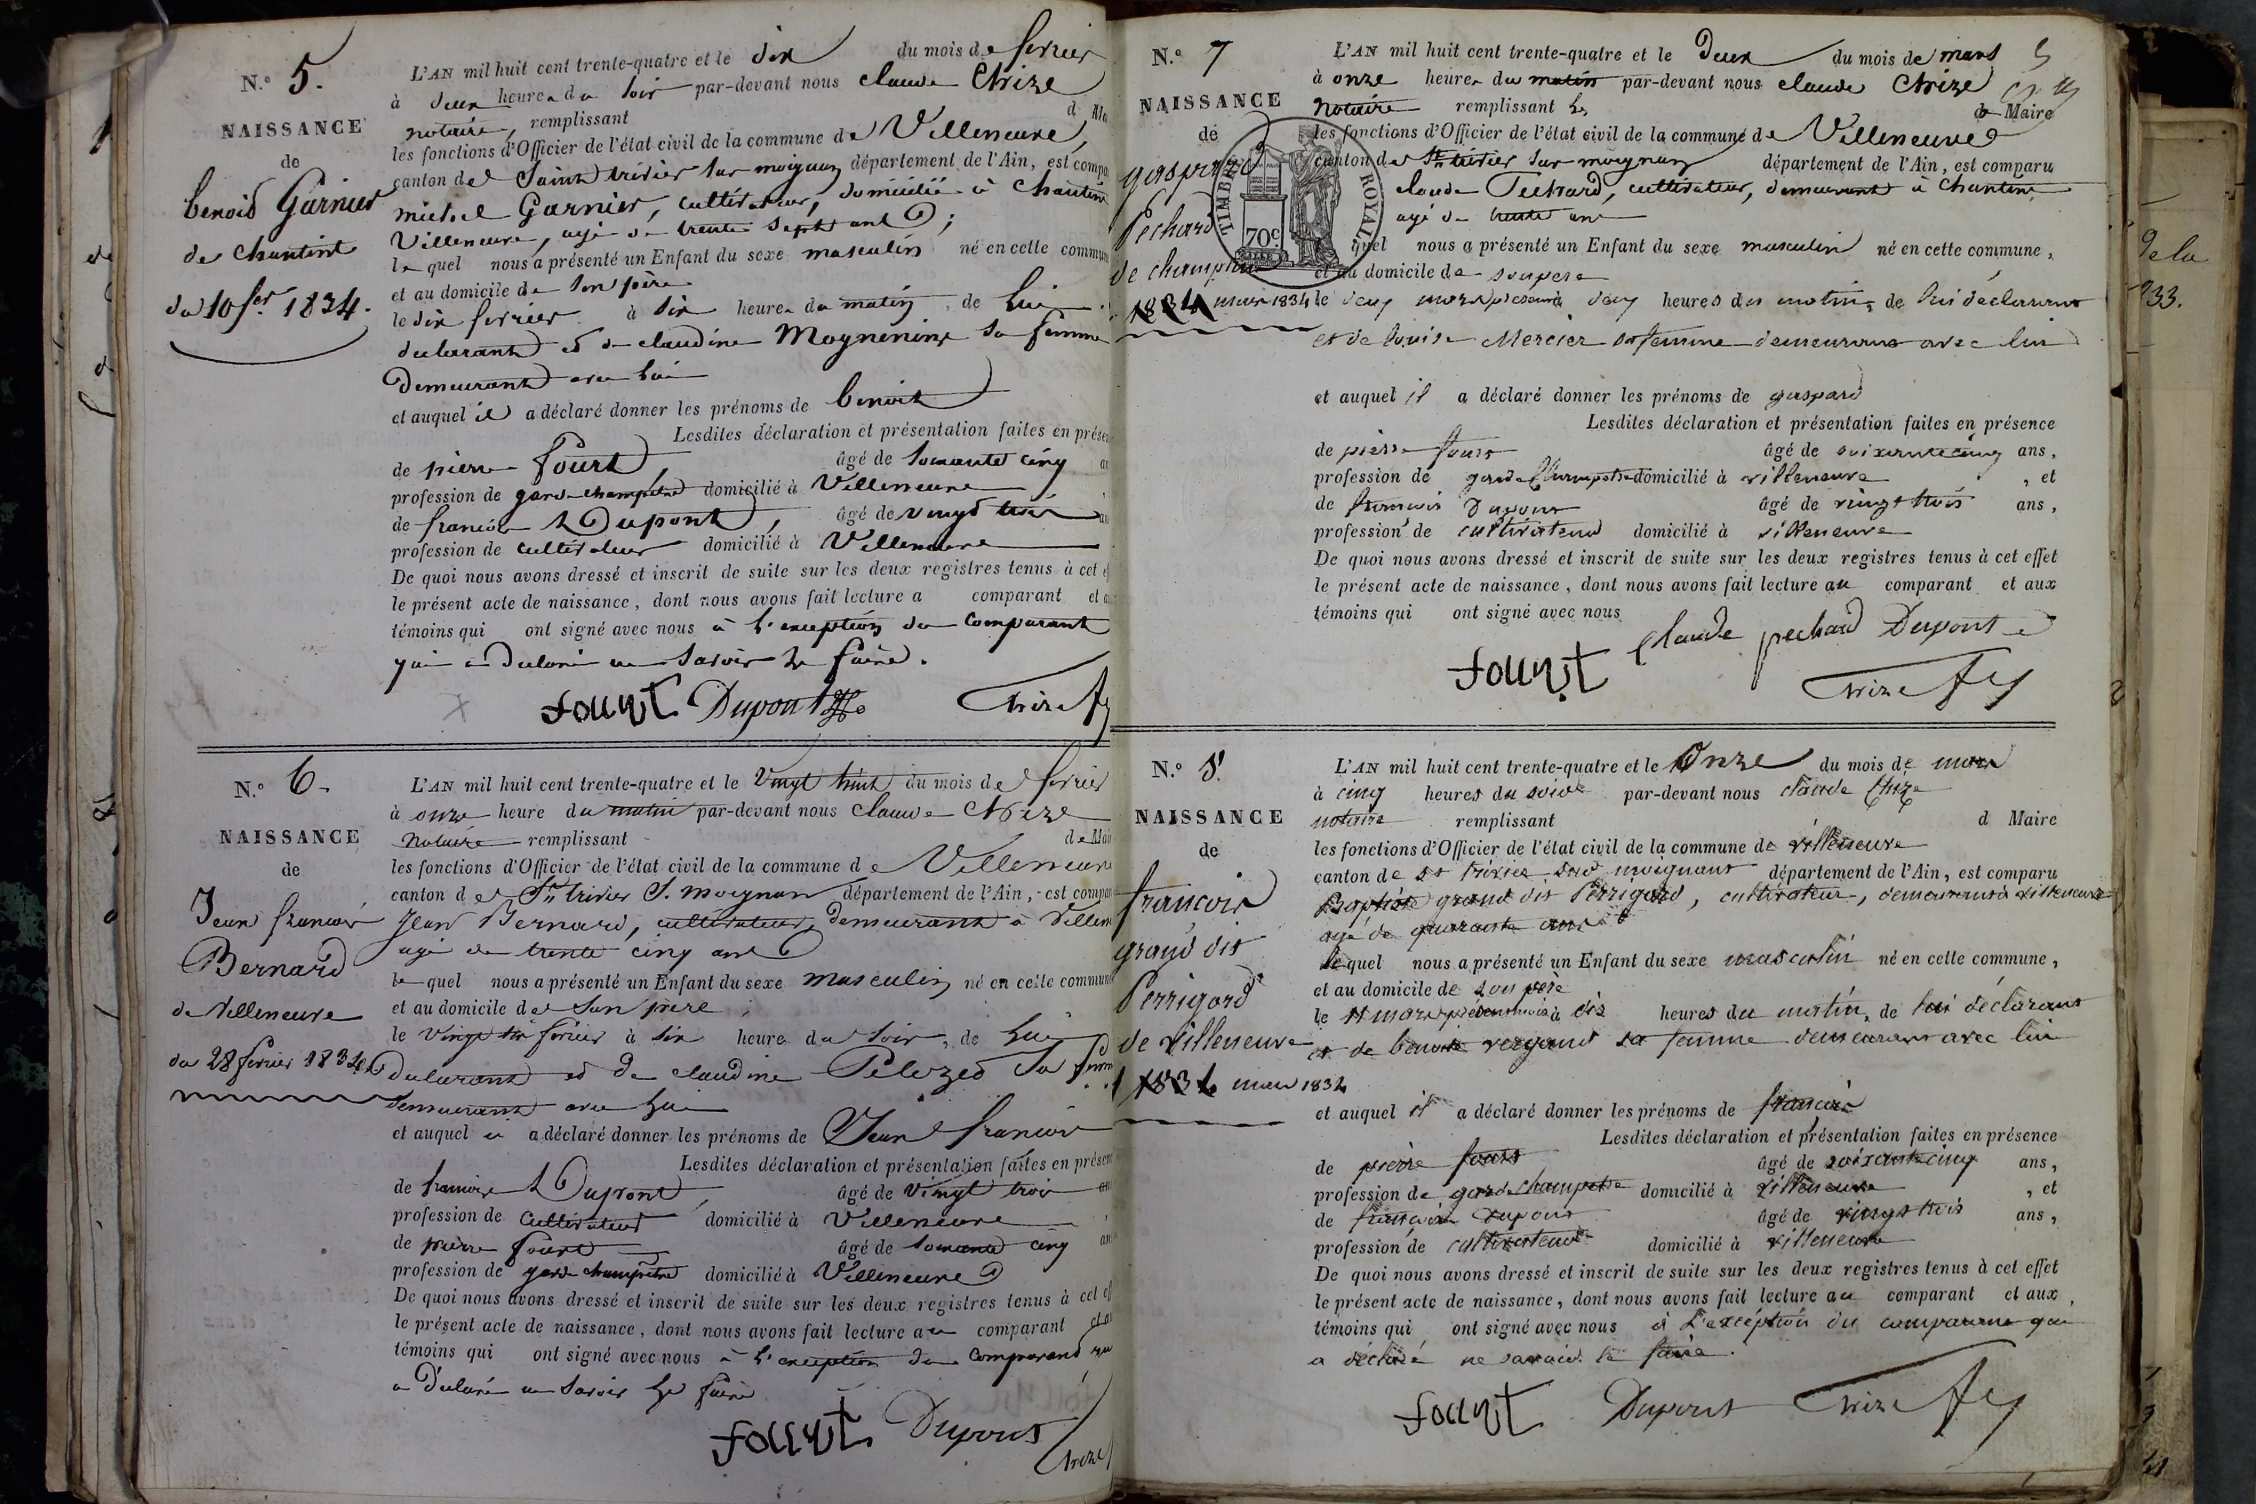 N.° 5.
NAISSANCE
de
benoid Garnier
de Chantint
du 10 fer. 1834.
L'AN mil huit cent trente-quatre et le dix du mois de fevrier
à deux heures du soir par-devant nous claude Chize
notaire, remplissant d
les fonctions d'Officier de l'état civil de la commune de Villeneuve,
canton de Saint trivier sur moignan département de l'Ain, est compa
michel Garnier, cultivateur, domicilié à Chantin
Villeneuve, agé de trente sept ans;
le quel nous a présenté un Enfant du sexe masculin né en cette commun
et au domicile de son père
le dix fevrier à six heures du matin, de lui
declarant et de claudine Mognenine sa femme
demeurant avec lui
et auquel il a déclaré donner les prénoms de benoit
Lesdites déclaration et présentation faites en présen
de pierre fourt, âgé de soixante cinq
profession de garde champêtre domicilié à Villeneuve
de francois Dupont, âgé de vingt trois
profession de cultivateur domicilié à Villeneuve
De quoi nous avons dressé et inscrit de suite sur les deux registres tenus à cet
le présent acte de naissance, dont nous avons fait lecture a comparant et
témoins qui ont signé avec nous à l'exception du comparant
qui a declaré ne savoir le faire.
fourt Dupont Chize
N.° 6.
NAISSANCE
de
Jean francois
Bernard
de Villeneuve
du 28 fevrier 1834
L'AN mil huit cent trente-quatre et le Vingt huit du mois de fevrier
à onze heure du matin par-devant nous Claude Chize
notaire remplissant de Mai
les fonctions d'Officier de l'état civil de la commune de Villeneuve
canton de St trivier S. moignan département de l'Ain, est compa
Jean Bernard, cultivateur, demeurant à Villen
agé de trente cinq ans
le quel nous a présenté un Enfant du sexe masculin né en cette commune
et au domicile de son père
le vingt fevrier à six heure du soir, de lui
declarant et de claudine Pelozed sa femm
demeurant avec lui
et auquel il a déclaré donner les prénoms de Jean francois
Lesdites déclaration et présentation faites en présen
de francois Dupont, âgé de vingt trois
profession de cultivateur domicilié à Villeneuve
de pierre fourt âgé de soixante cinq
profession de garde champêtre domicilié à Villeneuve
De quoi nous avons dressé et inscrit de suite sur les deux registres tenus à cet
le présent acte de naissance, dont nous avons fait lecture au comparant
témoins qui ont signé avec nous à l'exception du comparant
a declaré ne savoir le faire
fourt Dupont Chize
N.° 7
NAISSANCE
de
gaspard
Pechard
de
mars 1834
TIMBRE ROYAL
70c
L'AN mil huit cent trente-quatre et le Deux du mois de mars
à onze heures du matin par-devant nous claude Chize
notaire remplissant les de Maire
les fonctions d'Officier de l'état civil de la commune de Villeneuve
canton de St trivier sur moignan département de l'Ain, est comparu
claude Pechard, cultivateur, demeurant à Chantin
agé de trente ans
quel nous a présenté un Enfant du sexe masculin né en cette commune,
et au domicile de son pere
le deux mars présent à deux heures du matin, de lui déclarant
et de louise Mercier sa femme demeurant avec lui
et auquel il a déclaré donner les prénoms de gaspard
Lesdites déclaration et présentation faites en présence
de pierre fourt âgé de soixante cinq ans,
profession de garde Champetre domicilié à villeneuve, et
de francois Dupont âgé de vingt trois ans,
profession de cultivateur domicilié à villeneuve
De quoi nous avons dressé et inscrit de suite sur les deux registres tenus à cet effet
le présent acte de naissance, dont nous avons fait lecture au comparant et aux
témoins qui ont signé avec nous
Claude pechard Dupont
fourt Chize
N.° 8.
NAISSANCE
de
francois
grand dit
Perrigord
de Villeneuve
mars 1834
L'AN mil huit cent trente-quatre et le Onze du mois de mars
à cinq heures du soir par-devant nous claude Chize
notaire remplissant d Maire
les fonctions d'Officier de l'état civil de la commune de villeneuve
canton de st trivier sur moignans département de l'Ain, est comparu
Baptiste grand dit Perrigord, cultivateur, demeurant à villeneuve
agé de quarante ans
lequel nous a présenté un Enfant du sexe masculin né en cette commune,
et au domicile de son père
le 11 mars présent mois à dix heures du matin, de lui déclarant
et de benoite vergend sa femme demeurant avec lui
et auquel il a déclaré donner les prénoms de francois
Lesdites déclaration et présentation faites en présence
de pierre fourt âgé de soixante cinq ans,
profession de garde champetre domicilié à villeneuve, et
de francois dupont âgé de vingt trois ans,
profession de cultivateur domicilié à villeneuve
De quoi nous avons dressé et inscrit de suite sur les deux registres tenus à cet effet
le présent acte de naissance, dont nous avons fait lecture au comparant et aux
témoins qui ont signé avec nous à l'exception du comparant qui
a déclaré ne savoir le faire.
fourt Dupont Chize
de la
33.